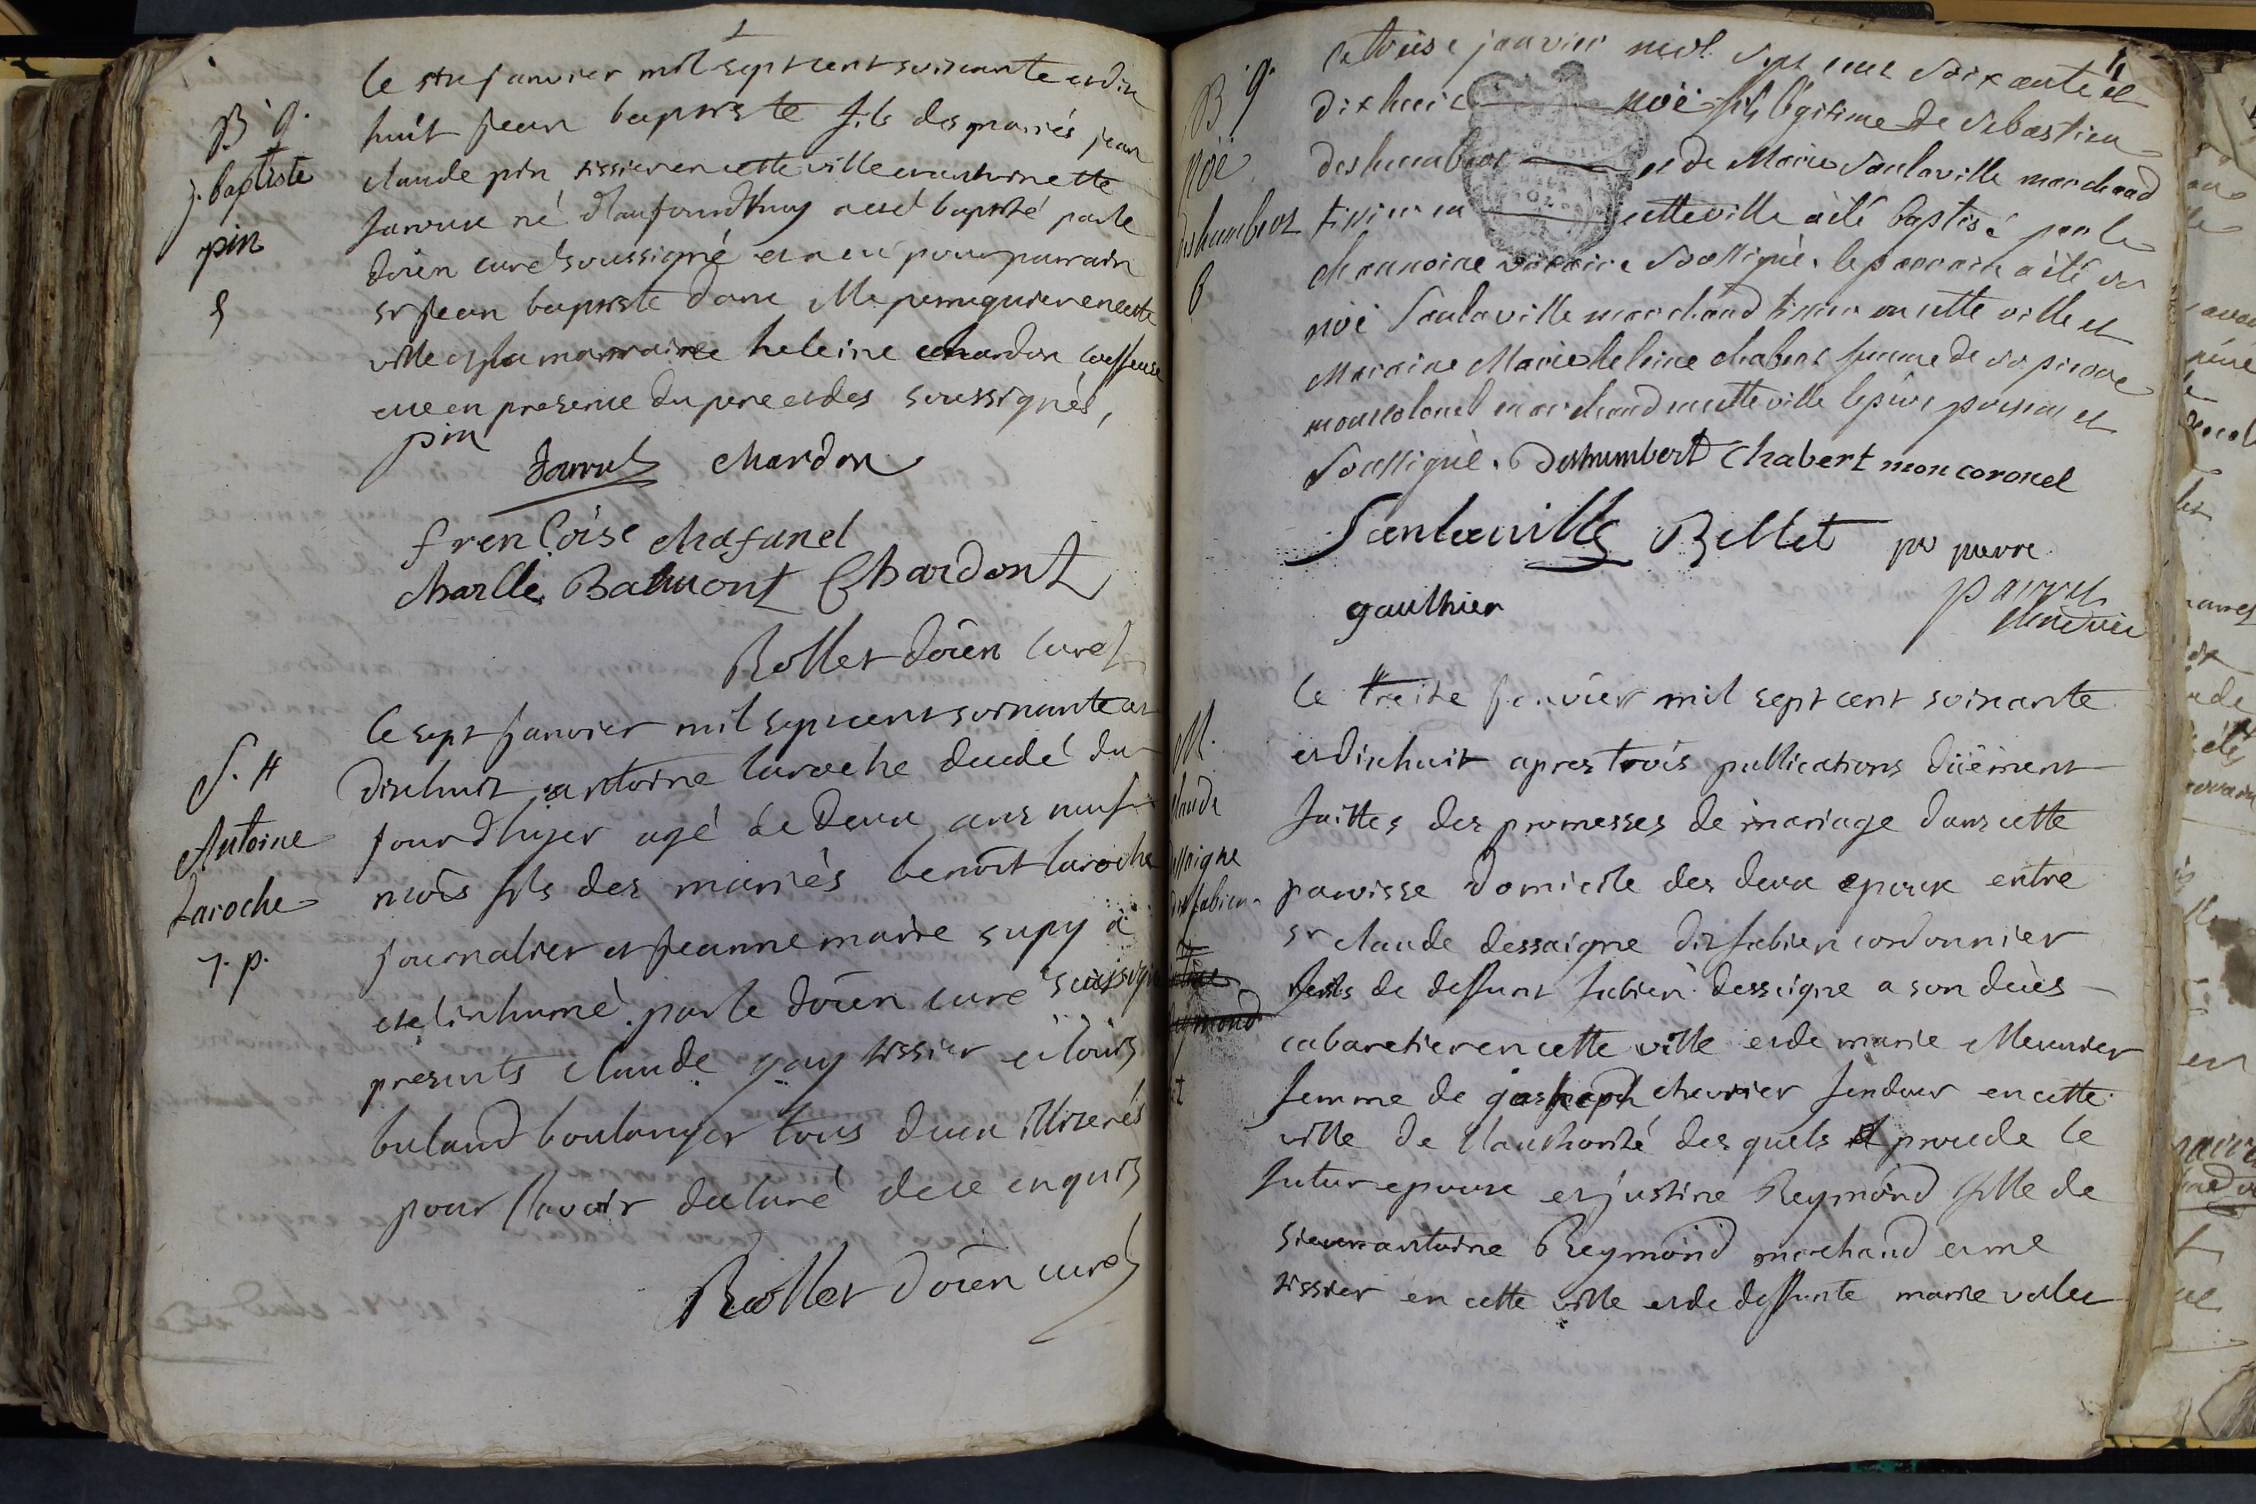 B g.
j. baptiste
pin
5
le janvier mil sept cent soixante et dix
huit jean baptiste fils des mariés jean
claude pin tissier en cette ville et antoinette
né d'aujourdhuy a eté baptisé par le
doïen curé soussigné et a eu pour parrain
sr jean baptiste Me perruquier en cette
ville et pla marraine heleine chardon
en presence du pere et des soussignés,
pin
chardon
frencoise chafanel
charlle Batmont Chardont
Rollet doïen curé
S. 4
Antoine
Laroche
7. p.
le sept janvier mil sept cent soixante et
dixhuit antoine laroche decedé du
jour d'hyer agé de deux ans neuf
mois fils des mariés benoit laroche
journalier et jeanne marie supy a
eté inhumé par le doïen curé soussigné
presents claude gay tissier et louis
buland boulanger tous deux illiterés
pour l'avoir declaré de ce enquis
Rollet doïen curé
4
B g.
Noë
deshumbert
6
le treise janvier mil sept cent soixante et
dixhuit noë fils légitime de Sebastien
deshumbert et de Marie Saulaville marchand
tissier en cette ville a été baptisé par le
chanoine vicaire soussigné. le parrain a été sr
noë Saulaville marchand tissier en cette ville et
Maraine Marie heleine chabert femme de sr pierre
moncolonel marchand en cette ville le père présent et
soussigné. Deshumbert Chabert mon coronel
Saulaville Billet
gauthier
M.
claude
dessaigne
dit fabien
et
justine
Reymond
le treize janvier mil sept cent soixante
et dixhuit apres trois publications düement
faittes des promesses de mariage dans cette
paroisse domicile des deux epoux entre
sr claude dessaigne dit fabien cordonnier
fils de deffunt fabien dessaigne a son décès
cabaretier en cette ville et de marie Meunier
femme de joseph chevrier fendeur en cette
ville de l'authorité des quels procede le
futur epoux et justine Reymond fille de
sieur antoine Reymond marchand et me
tissier en cette ville et de deffunte marie